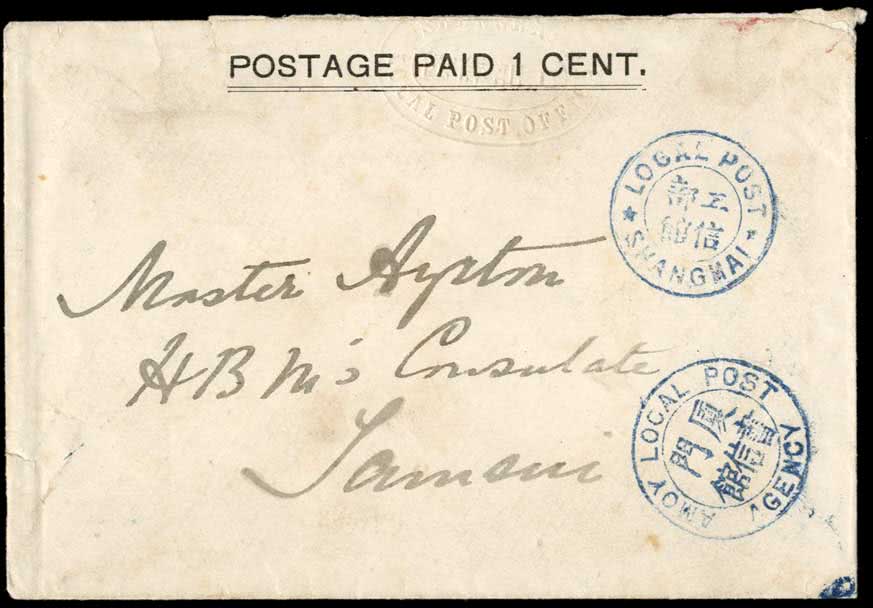 POSTAGE PAID 1 CENT.
LOCAL POST OFF
LOCAL POST
工部
信館
SHANGHAI
Master Ayrton
HBM's Consulate
Tamsui
AMOY LOCAL POST AGENCY
厦門
信館